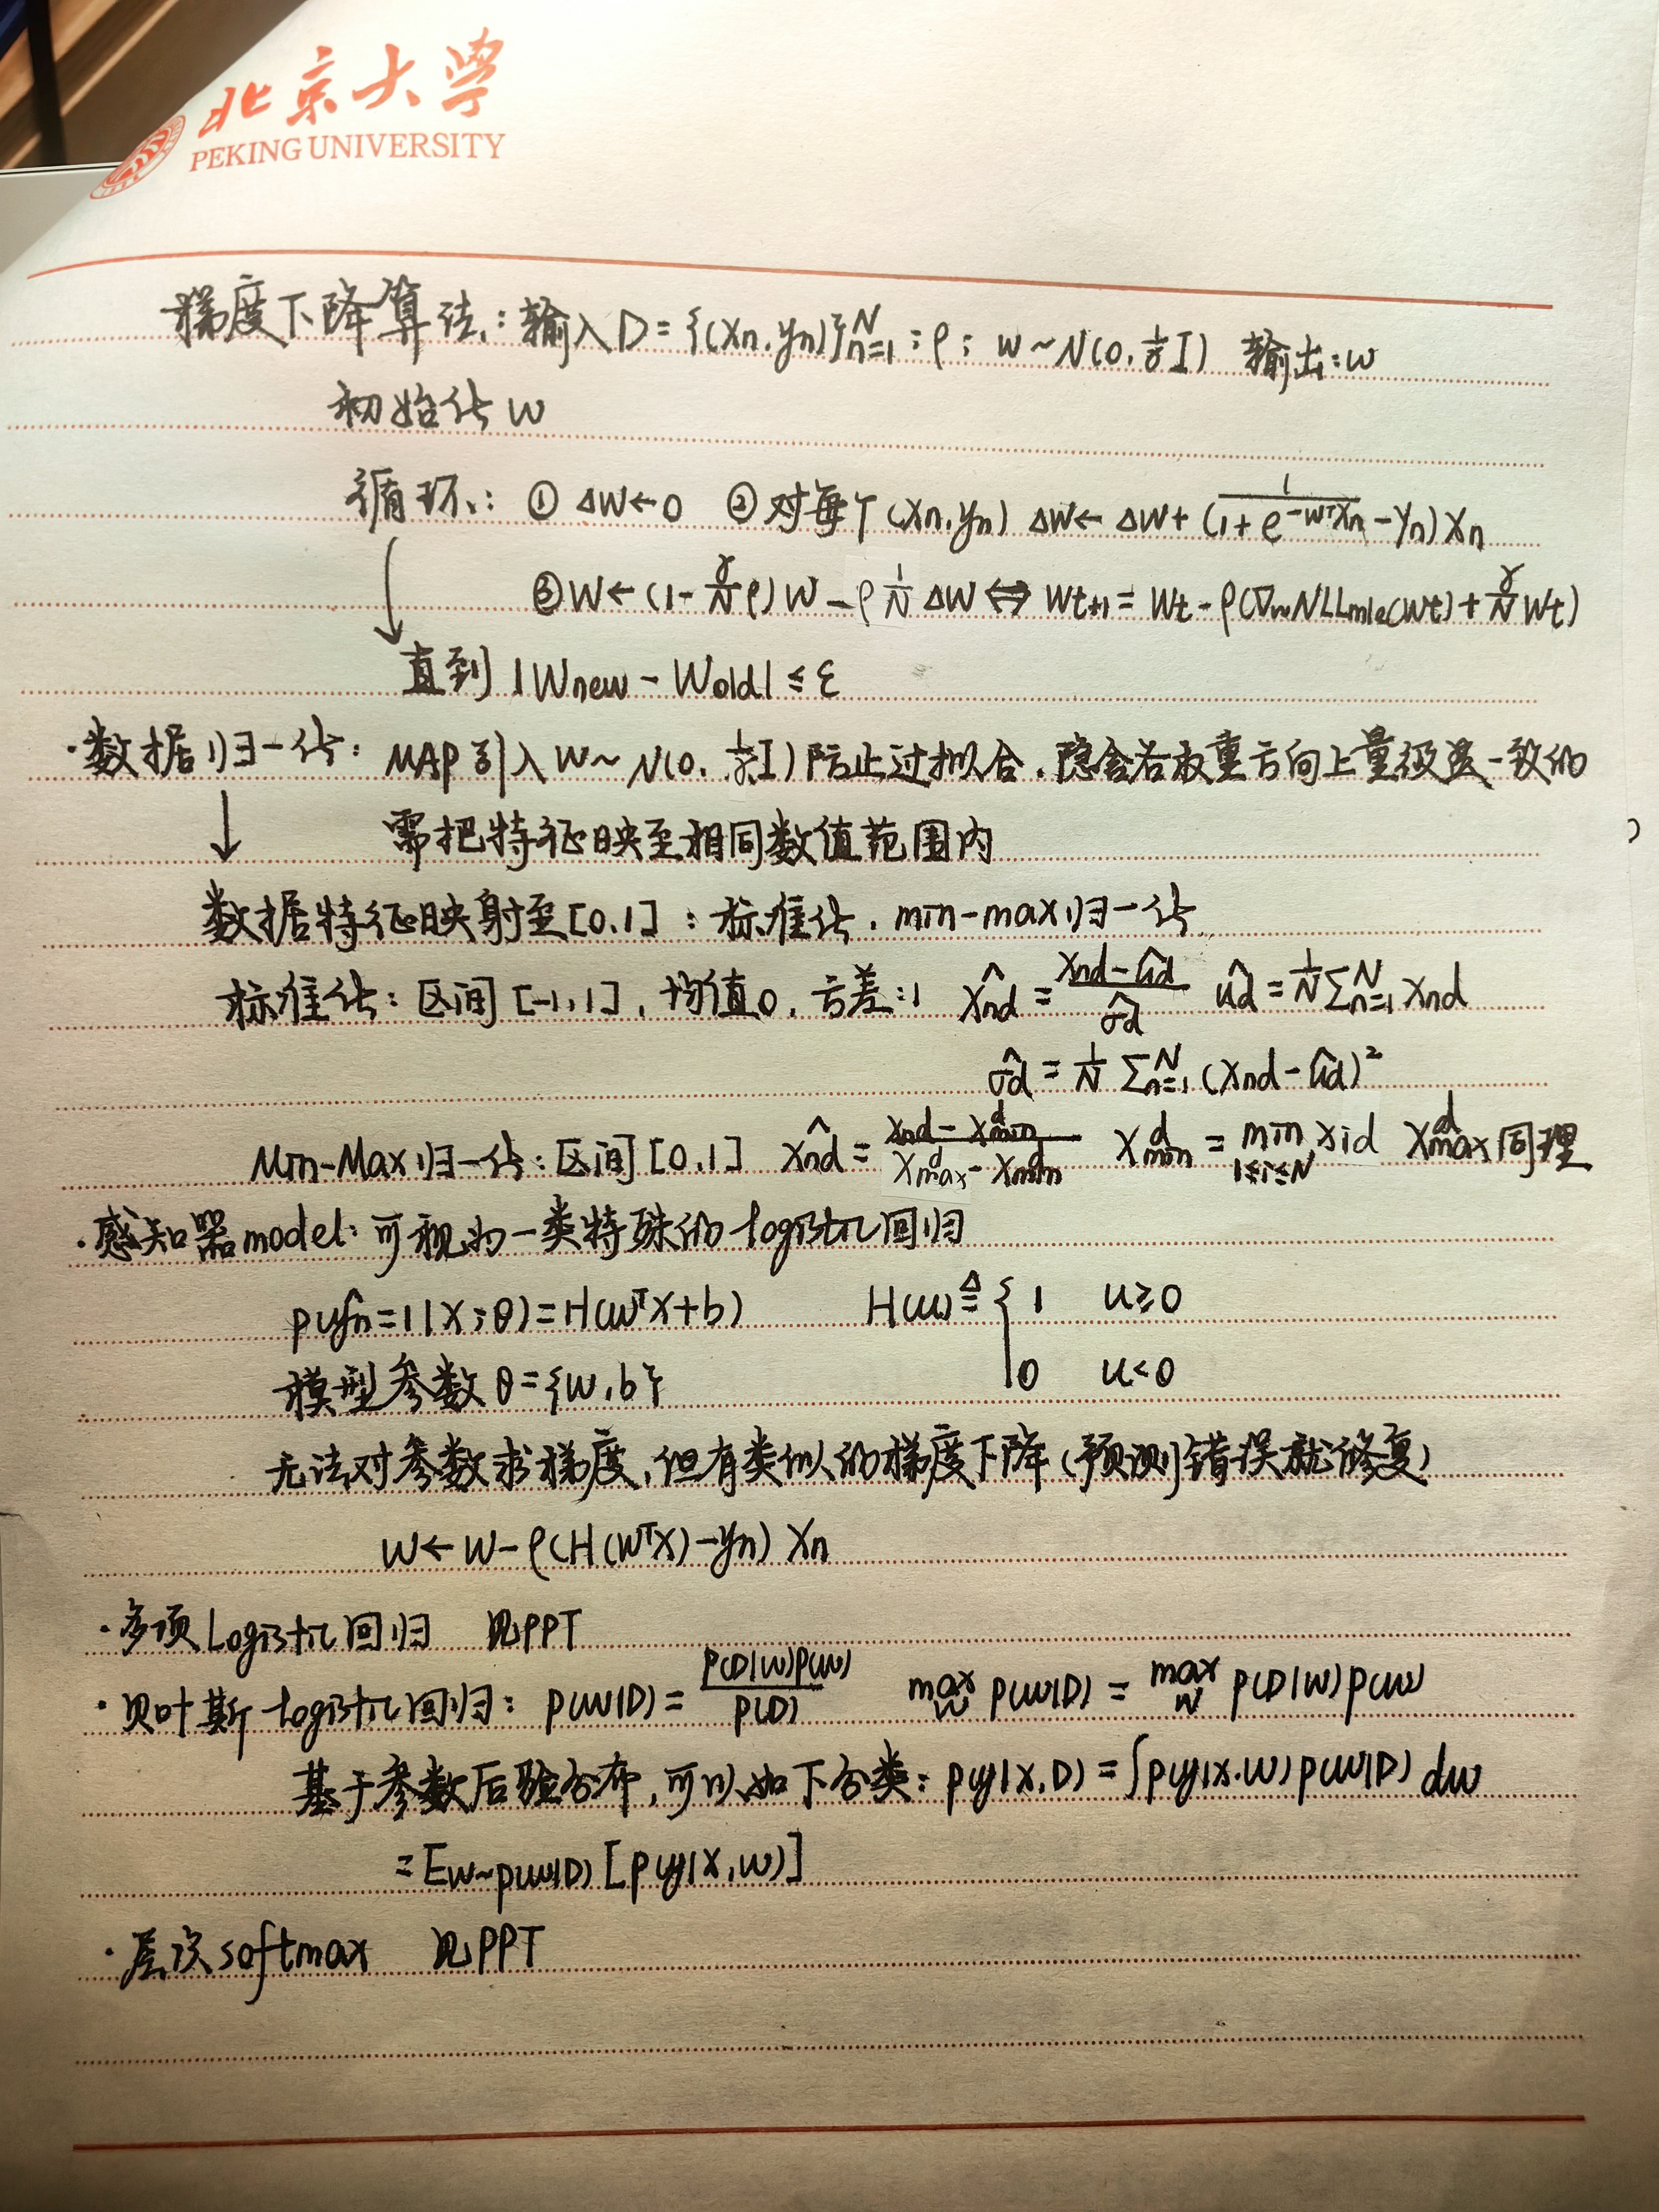 北京大学
PEKING UNIVERSITY
梯度下降算法：输入D={(xn,yn)}ₙ₌₁ᴺ；ρ；w~N(0, 1/γ I) 输出：w
初始化w
循环：① Δw←0 ② 对每个(xn,yn) Δw←Δw+(1/(1+e^(-wᵀxn))-yn)xn
③w←(1-γ/N ρ)w-ρ 1/N Δw⇔wt+1=wt-ρ(∇wNLLmle(wt)+γ/N wt)
直到|wnew-wold|≤ε
·数据归一化：MAP引入w~N(0, 1/γ I)防止过拟合，隐含各权重方向上量级是一致的
↓ 需把特征映至相同数值范围内
数据特征映射至[0,1]：标准化，min-max归一化
标准化：区间[-1,1]，均值0，方差：1 x̂nd=(xnd-ûd)/σ̂d ûd=1/N Σₙ₌₁ᴺ xnd
σ̂d=1/N Σₙ₌₁ᴺ (xnd-ûd)²
Min-Max归一化：区间[0,1] x̂nd=(xnd-xᵈmin)/(xᵈmax-xᵈmin) xᵈmin=min 1≤i≤N xid xᵈmax同理
·感知器model：可视为一类特殊的logistic回归
p(ŷn=1|x;θ)=H(wᵀx+b) H(u)≜{1 u≥0
模型参数θ={w,b} 0 u<0
无法对参数求梯度，但有类似的梯度下降(预测错误就修复)
w←w-ρ(H(wᵀx)-yn)xn
·多项Logistic回归 见PPT
·贝叶斯logistic回归：p(w|D)=p(D|w)p(w)/p(D) max w p(w|D)=max w p(D|w)p(w)
基于参数后验分布，可以如下分类：p(y|x,D)=∫p(y|x,w)p(w|D)dw
=Ew~p(w|D)[p(y|x,w)]
·层次softmax 见PPT